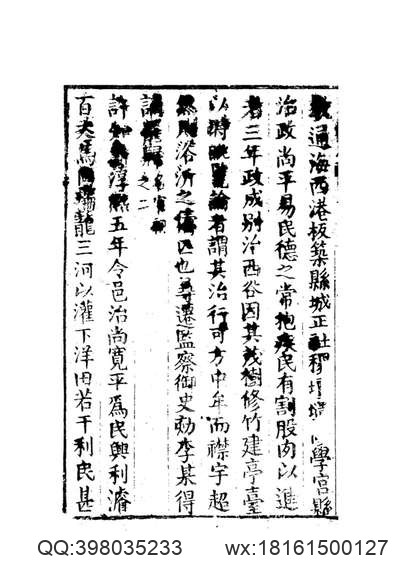 通海西港板築縣城正社稷壇學宮縣
治政尚平易民德之常抱疾民有割股肉以進
者三年政成別治西谷因其茂樹修竹建亭臺
以時者謂其治行可方中牟而襟宇超
浴沂之也尋遷監察御史勅李杲得
之二
許淳熙五年令邑治尚寬平爲民興利濬
百丈馬龍三河以灌下洋田若干利民甚
QQ:398035233 wx:18161500127